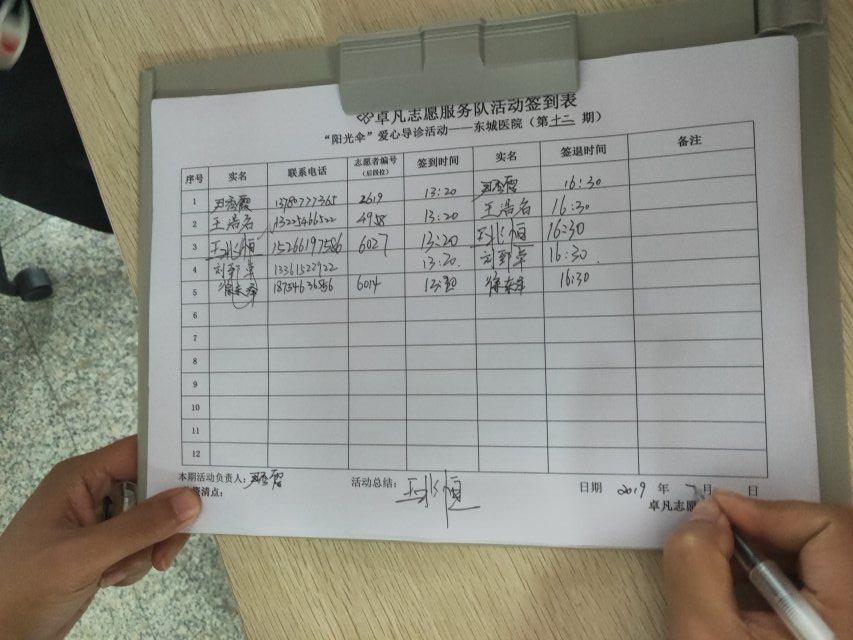 卓凡志愿服务队活动签到表
“阳光伞”爱心导诊活动——东城医院（第十二期）
序号 实名 联系电话 志愿者编号（后四位） 签到时间 实名 签退时间 备注
1 2619 13:20 16:30
2 王浩名 13225466522 4958 13:20 王浩名 16:30
3 王永恒 15266197586 6027 13:20 王永恒 16:30
4 刘郅卓 13361522922 13:20. 刘郅卓 16:30.
5 18754636856 6014 16:30
6
7
8
9
10
11
12
本期活动负责人： 活动总结： 王永恒 日期 2019 年 7 月 日
清点： 卓凡志愿